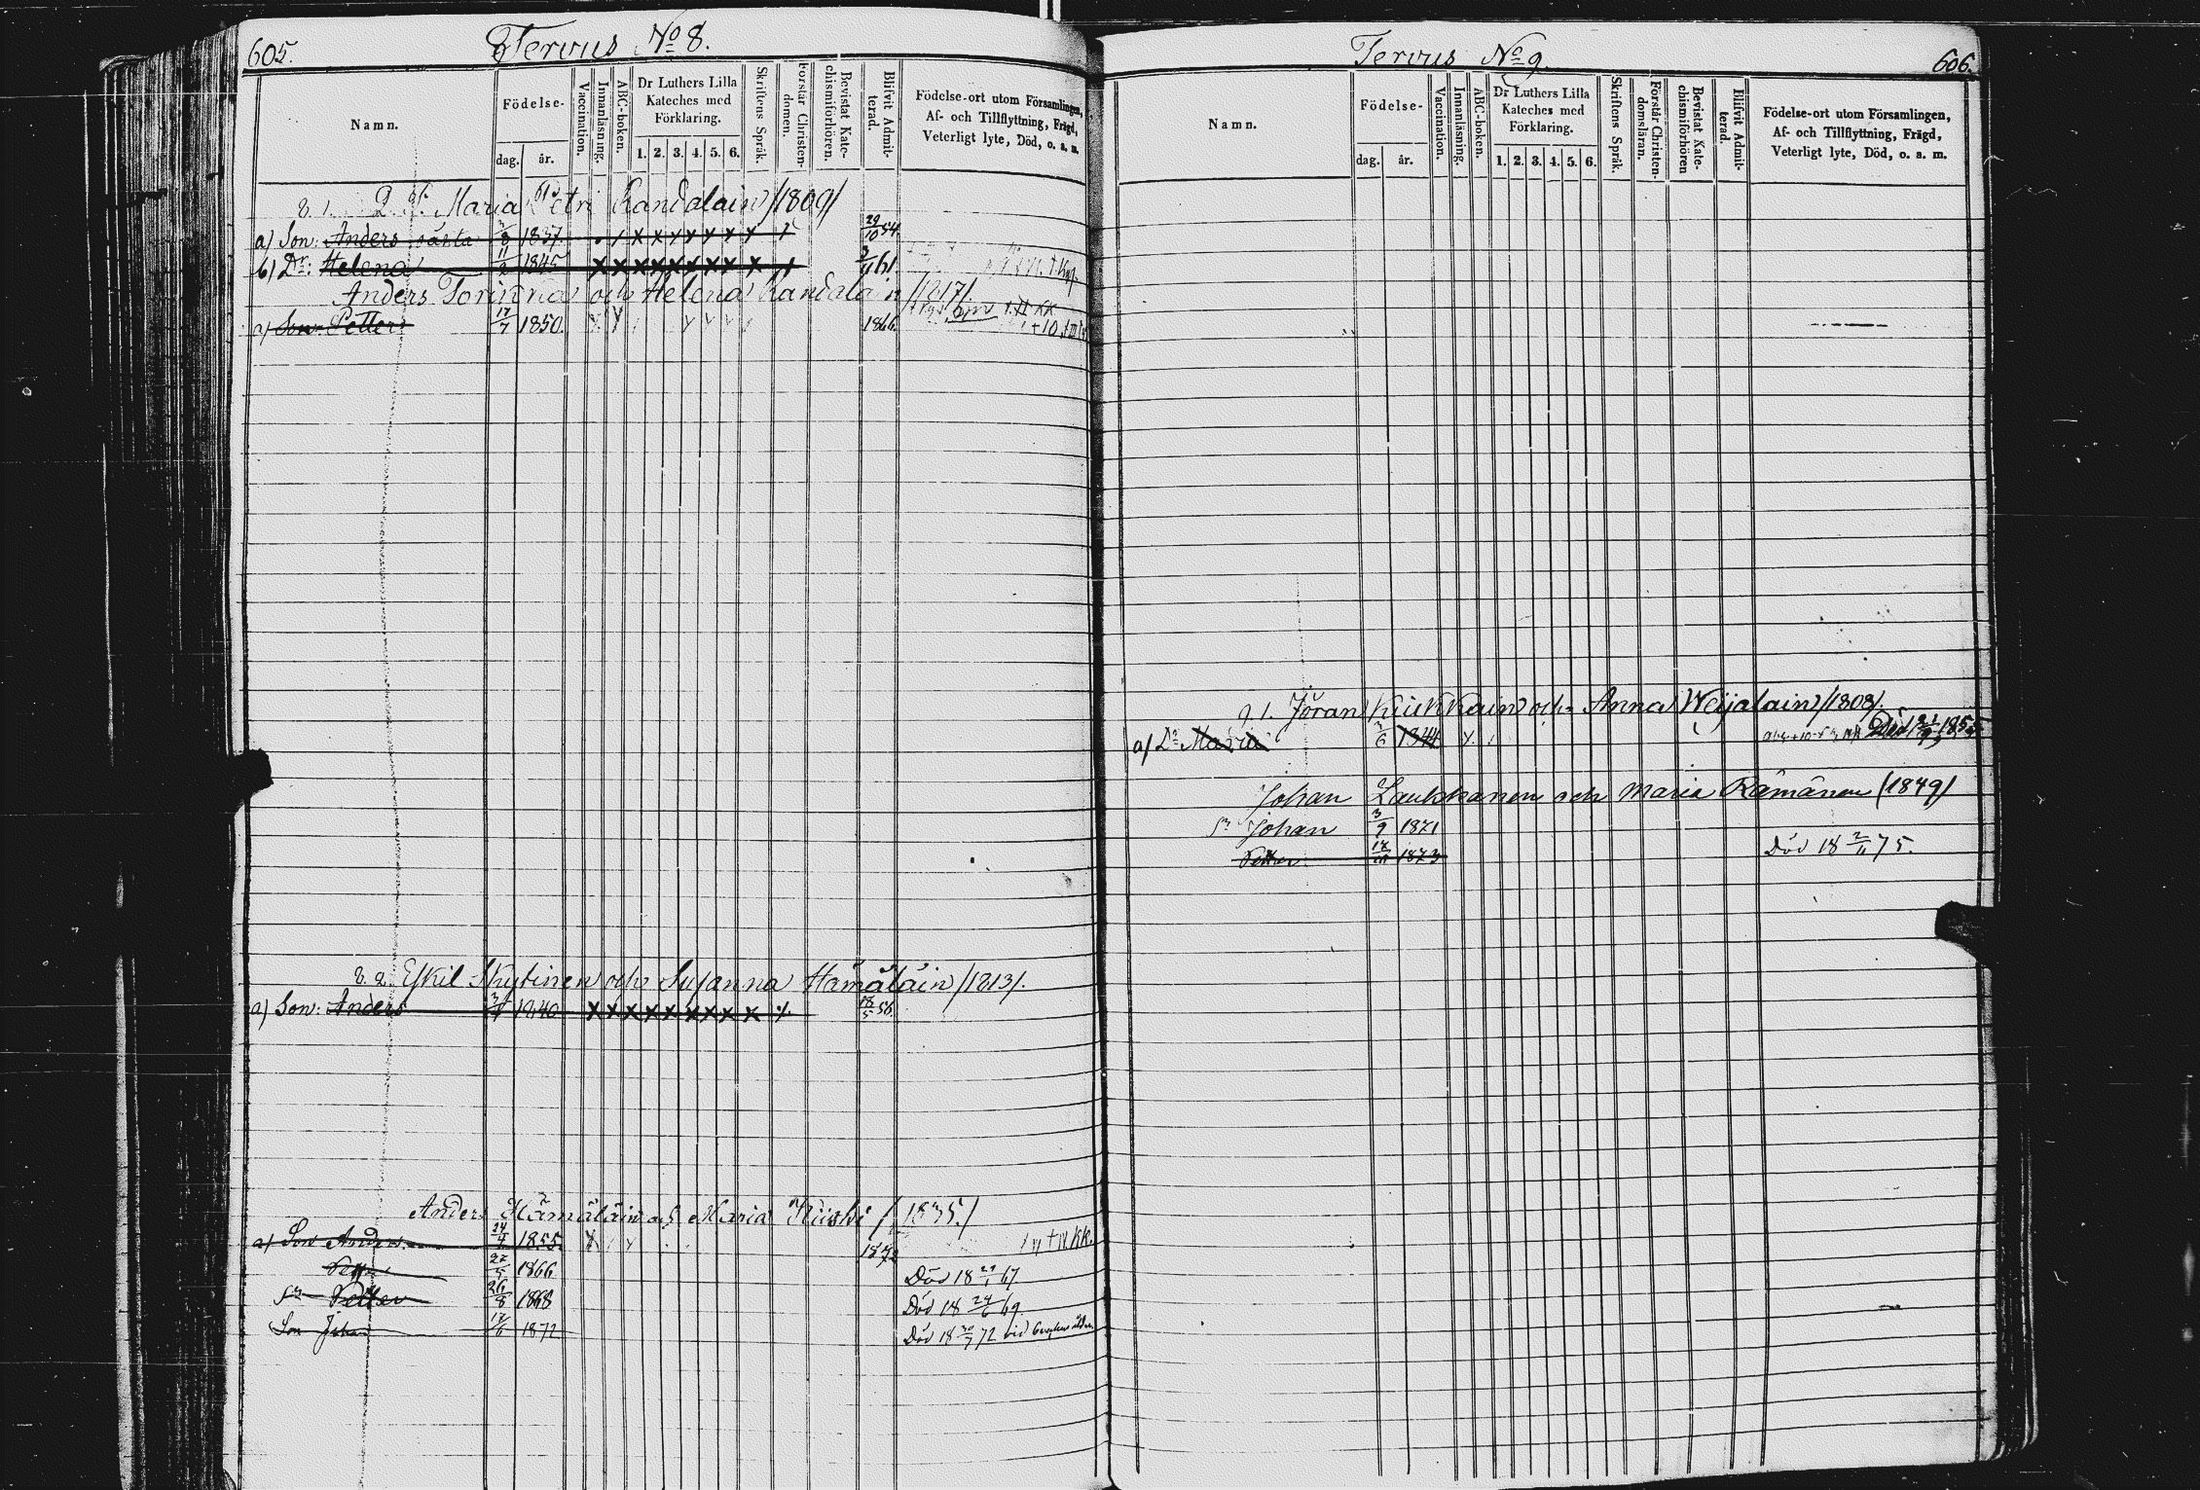 605.
Tervus No 8.
Namn.
Födelse-
dag. år.
Vaccination.
Innanläsning.
ABC-boken.
Dr Luthers Lilla
Kateches med
Förklaring.
1. 2. 3. 4. 5. 6.
Skriftens Språk.
Förstår Christen-
domen.
Bevistat Kate-
chismiförhören.
Blifvit Admit-
terad.
Födelse-ort utom Församlingen,
Af- och Tillflyttning, Frägd,
Veterligt lyte, Död, o. s. m.
8. 1. Maria Petri Kandalain /1809/
a) Son: Anders 3/8 1837. 29/10 54.
b) Dr: Helena 11/2 1845 3/11 61.
Anders Torinna och Helena Kandalain /1817/
a) Son: Petter 17/7 1850. 1866.
8. 2. Eskil Skytinen och Susanna Hämäläin /1813/.
a) Son: Anders 1840 18/5 56.
Anders Hämäläin och Maria Kiiski /1835/
a) Son Anders 24/4 1855. 1872
Petter 22/5 1866 Död 18 29/1 67
Sn Petter 26/8 1868 Död 18 24/6 69.
Son Johan 17/6 1872 Död 18 30/7 72 vid
Tervus No 9.
606.
Namn.
Födelse-
dag. år.
Vaccination.
Innanläsning.
ABC-boken.
Dr Luthers Lilla
Kateches med
Förklaring.
1. 2. 3. 4. 5. 6.
Skriftens Språk.
Förstår Christen-
domsläran.
Bevistat Kate-
chismiförhören
Blifvit Admit-
terad.
Födelse-ort utom Församlingen,
Af- och Tillflyttning, Frägd,
Veterligt lyte, Död, o. a. m.
9. 1. Jöran Kiukkain och Anna Weijalain /1808/.
a) Dr Maria 3/6 1844 Död
Johan Laukkanen och Maria Rämänen (1849)
Sn Johan 3/9 1871
Petter 1873 Död 18 2/11 75.